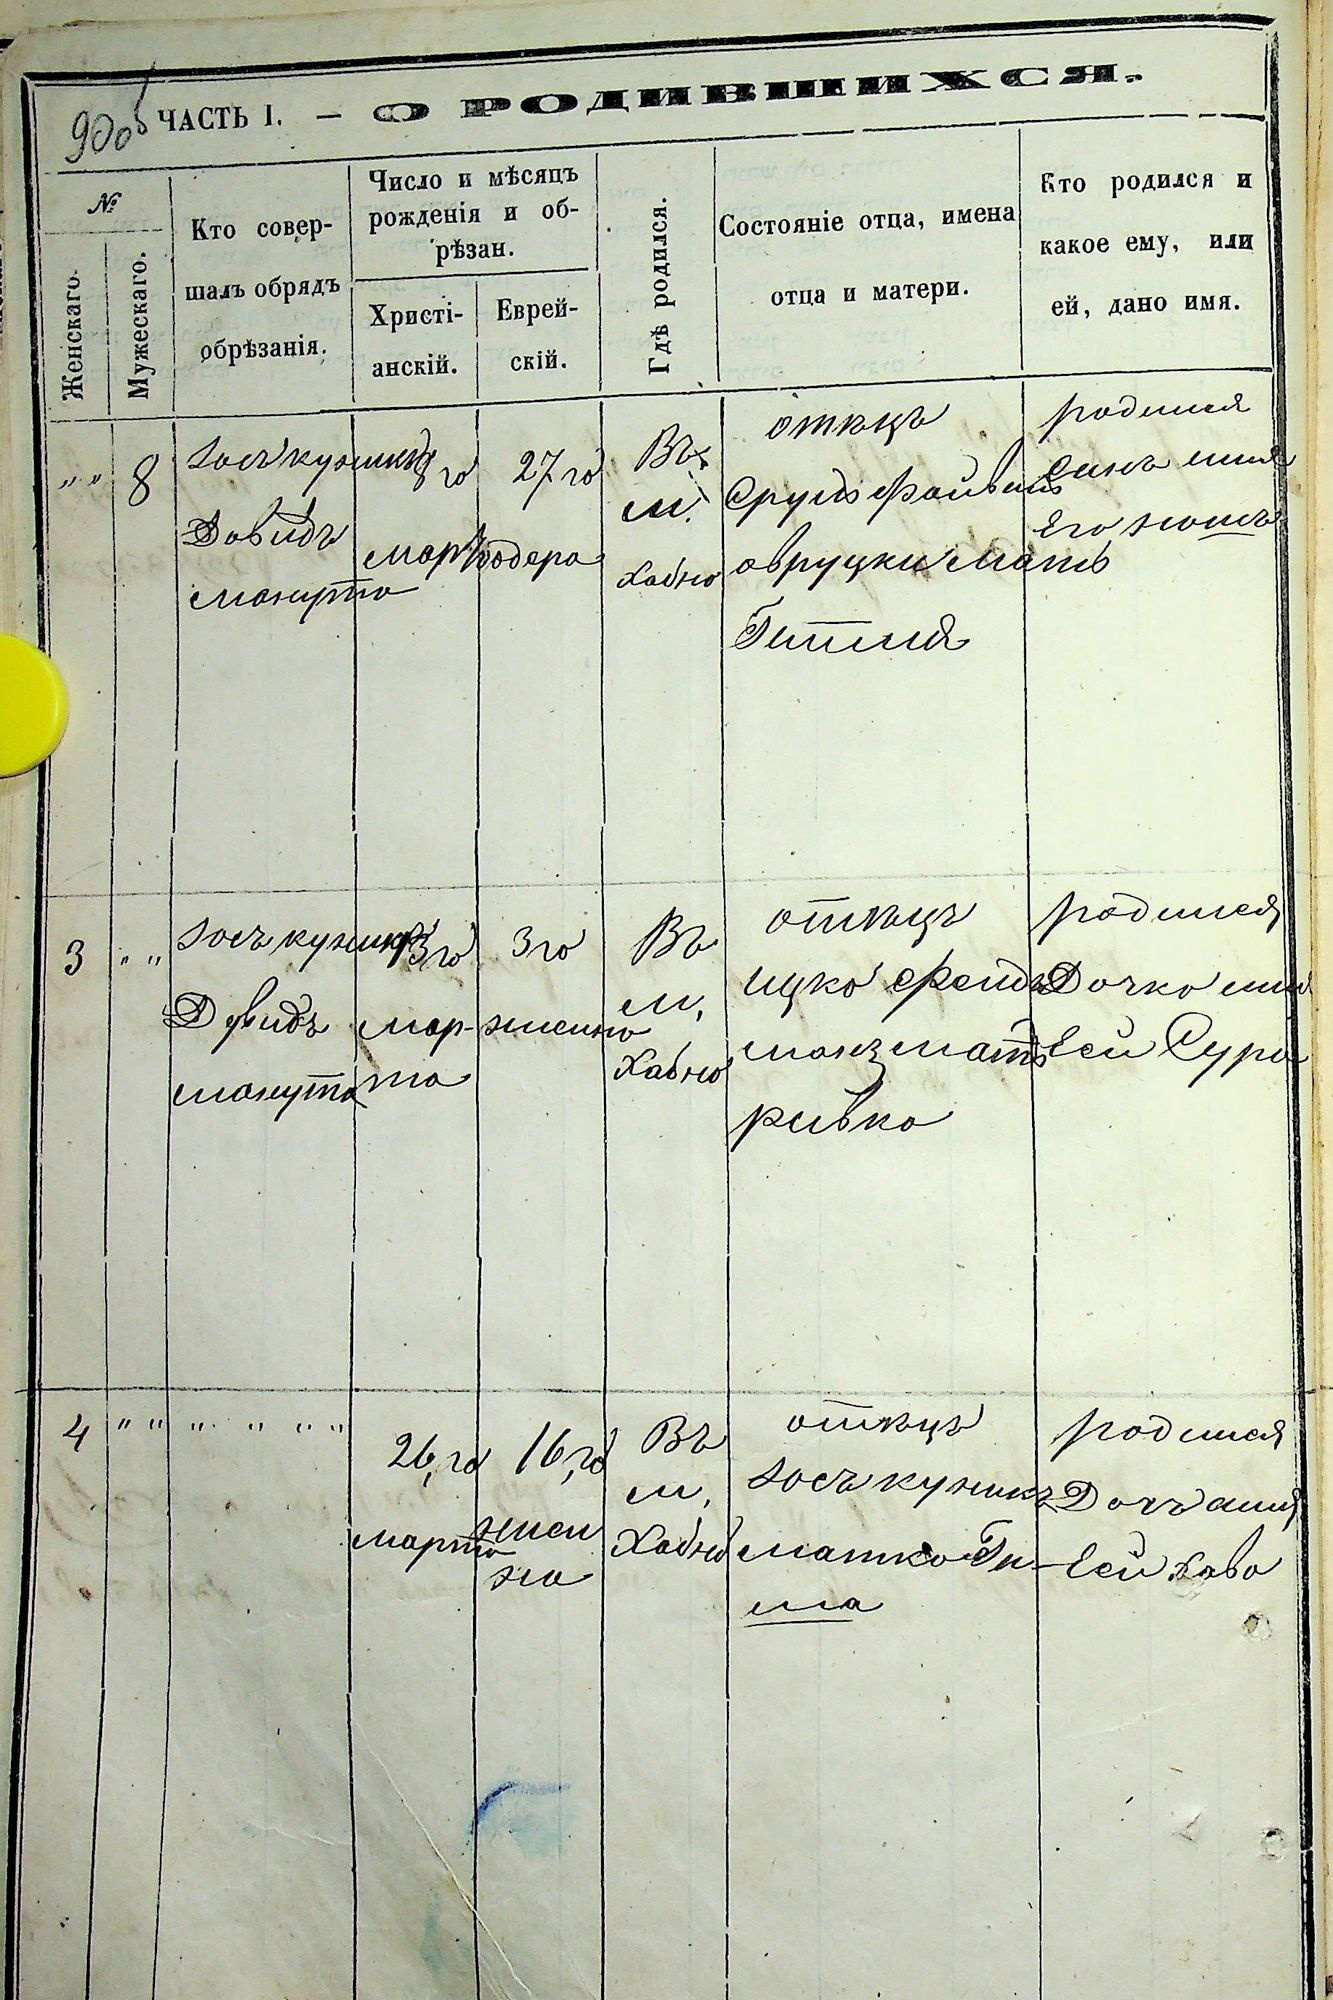 90об
ЧАСТЬ I. — О РОДИВШИХСЯ.
№
Женскаго.
Мужескаго.
Кто совер-
шалъ обрядъ
обрѣзанія.
Число и мѣсяцъ
рожденія и об-
рѣзан.
Христі-
анскій.
Еврей-
скій.
Гдѣ родился.
Состояніе отца, имена
отца и матери.
Кто родился и
какое ему, или
ей, дано имя.
„ „
8
Іосъ куникъ
Довидъ
макута
8го
мар
27го
Водера
Въ
м.
Хабно
отецъ
Сруль Файвишъ
овруцки мать
Гитля
родился
синъ имя
Его
3
„ „
Іосъ куникъ
Довидъ
макута
13го
мар-
та
3го
нисина
Въ
м.
Хабно
отецъ
ицко
мать
ривка
родился
Дочка имя
Ей Сура
4
„ „
„ „ „ „
26,го
марта
16,го
ниси
на
Въ
м.
Хабно
отецъ
Іосъ куникъ
матка Ги-
ша
родился
Дочъ имя
Ей Хава